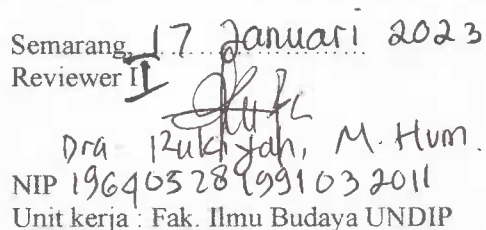 Semarang, 17 Januari 2023
Reviewer II
Dra Rukiyah, M. Hum.
NIP 196405281991032011
Unit kerja : Fak. Ilmu Budaya UNDIP